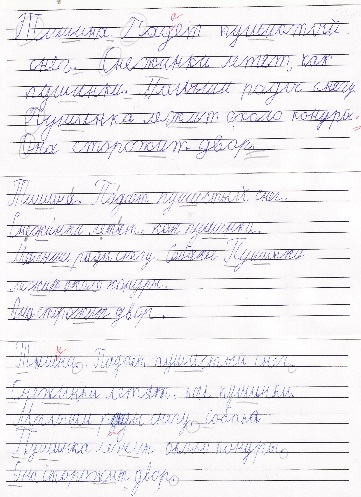 Тишина Падёт пушистый
снег. Снежинки летят, как
пушинки. рады снегу
Пушинка лежит около конуры.
Она сторожит двор.
Тишина. Падат пушистый снег.
Снежинки летят, как пушинки.
рады снегу. Собака Пушинка
лежит около конуры.
Она сторожит двор.
Тишина. Падает пушистый снег.
Снежинки летят, как пушинки
снегу, собака
Пушинка около конуры.
двор.